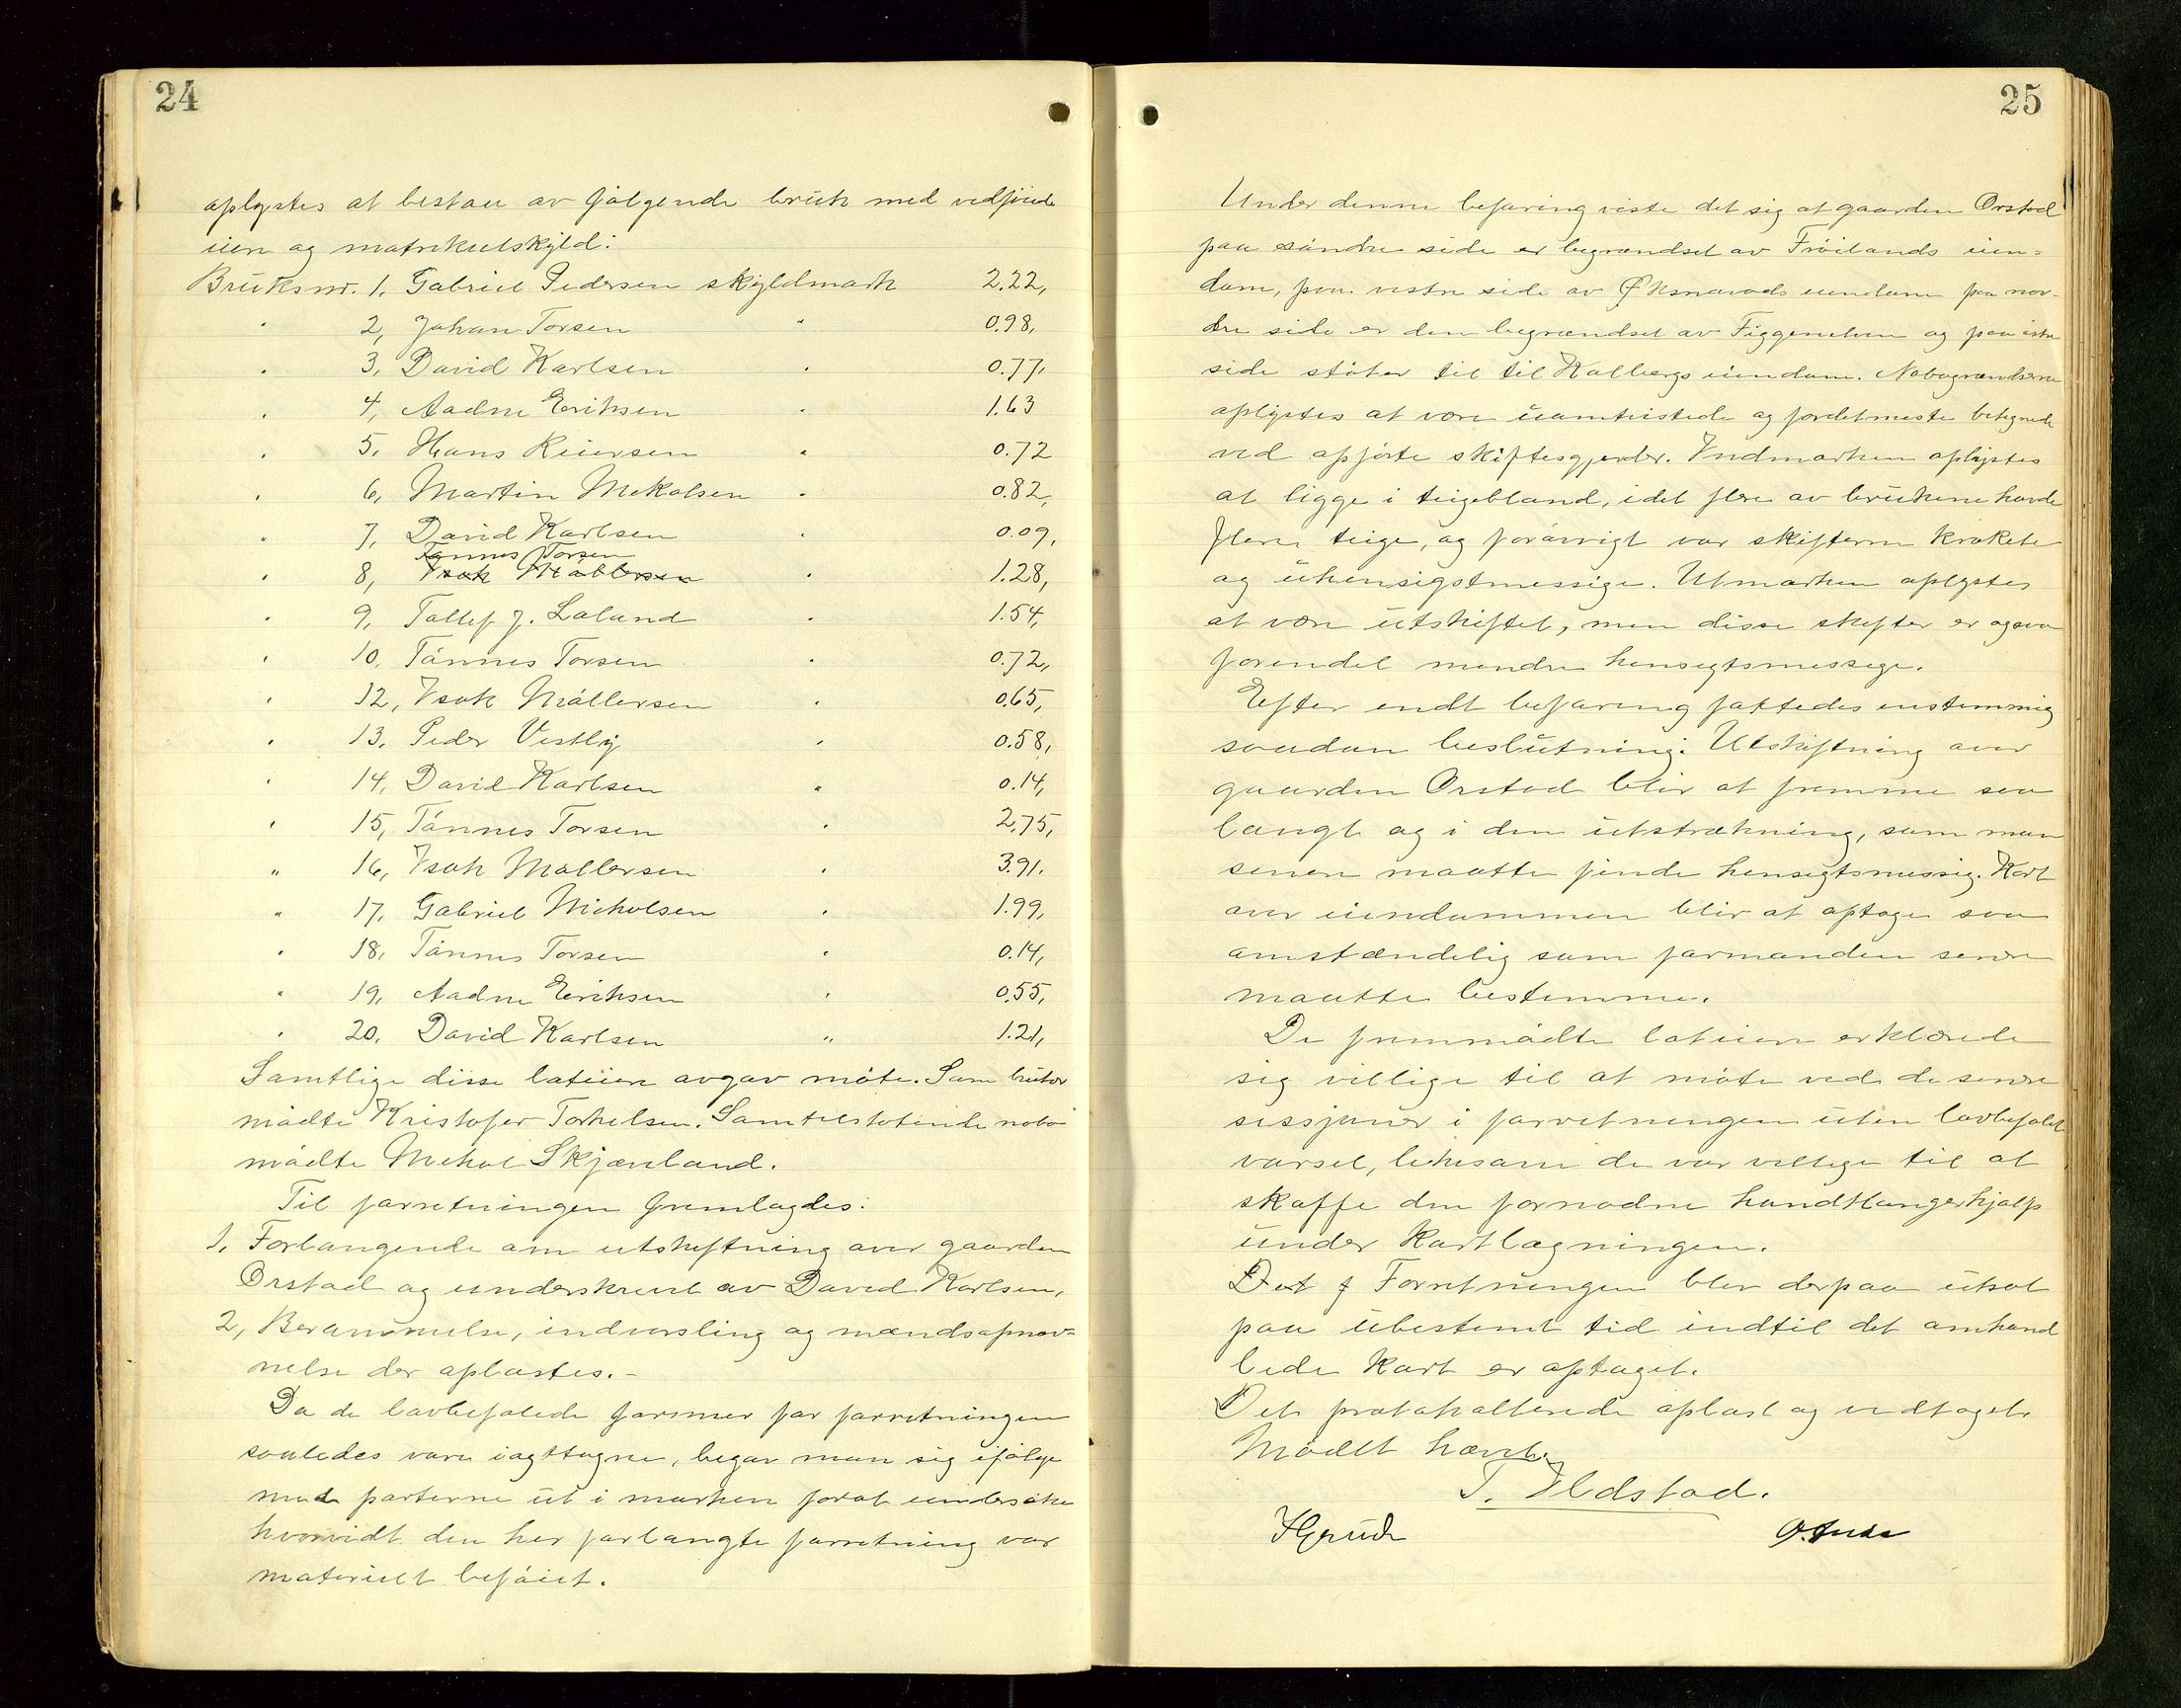 24
oplystes at bestaa av følgende bruk med vedføiede
eiere og matrikulskyld:
Bruksnr. 1, Gabriel Pedersen skyldmark 2.22,
" 2, Johan Torsen " 0.98,
" 3, David Karlsen " 0.77,
" 4, Aadne Eriksen " 1.63
" 5, Hans Reiersen " 0.72
" 6, Martin Mikalsen " 0.82,
" 7, David Karlsen " 0.09,
Tønnes Torsen
" 8, Isak Møllersen " 1.28,
" 9, Tallef J. Laland " 1.54,
" 10, Tønnes Torsen " 0.72,
" 12, Isak Møllersen " 0.65,
" 13, Peder Vestly " 0.58,
" 14, David Karlsen " 0.14,
" 15, Tønnes Torsen " 2.75,
" 16, Isak Møllersen " 3.91,
" 17, Gabriel Mikalsen " 1.99,
" 18, Tønnes Torsen " 0.14,
" 19, Aadne Eriksen " 0.55,
" 20, David Karlsen " 1.21,
Samtlige disse lodeiere avgav møte. Som bruker
mødte Kristofer Torkelsen. Som tilstøtende nabo
mødte Mikal Skjæveland.
Til forretningen fremlagdes:
1, Forlangende om utskiftning over gaarden
Orstad og underskrevet av David Karlsen,
2, Berammelse, indvarsling og mændsopnæv-
nelse der oplæstes.-
Da de lovbefalede former for forretningen
saaledes være iagttagne, begav man sig ifølge
med parterne ut i marken forat undersøke
hvorvidt den her forlangte forretning var
materielt beføiet.
25
Under denne befaring viste det sig at gaarden Orstad
paa søndre side er begrændset av Frøilands eien=
dom, paa vestre side av Øksnavads eiendom paa nor-
dre side er den begrændset av Figgenelven og paa østre
side støter til til Kalbergs eiendom. Nabogrændserne
oplystes at være uomtvistede og fordetmeste betegnede
ved opførte skiftesgjerder. Indmarken oplystes
at ligge i teigebland, idet flere av brukene havde
flere teige, og forøvrigt var skifterne krokete
og uhensigtmessige. Utmarken oplystes
at være utskiftet, men disse skifter er ogsaa
forendel mindre hensigtsmessige.
Efter endt befaring fattedes enstemmig
saadan beslutning: Utskiftning over
gaarden Orstad blir at fremme saa
langt og i den utstrækning, som man
senere maatte finde hensigtsmessig. Kart
over eiendommen blir at optage saa
omstændelig som formanden senere
maatte bestemme.
De fremmødte lodeiere erklærede
sig villige til at møte ved de senere
sessjoner i forretningen uten lovbefalet
varsel, likesom de var villige til at
skaffe den fornødne handtlangerhjælp
under kartlægningen.
Det f Forretningen blev derpaa utsat
paa ubestemt tid indtil det omhand
lede kart er optaget.
Det protokollerede oplæst og vedtaget.
Mødet hævet.
T. Ildstad.